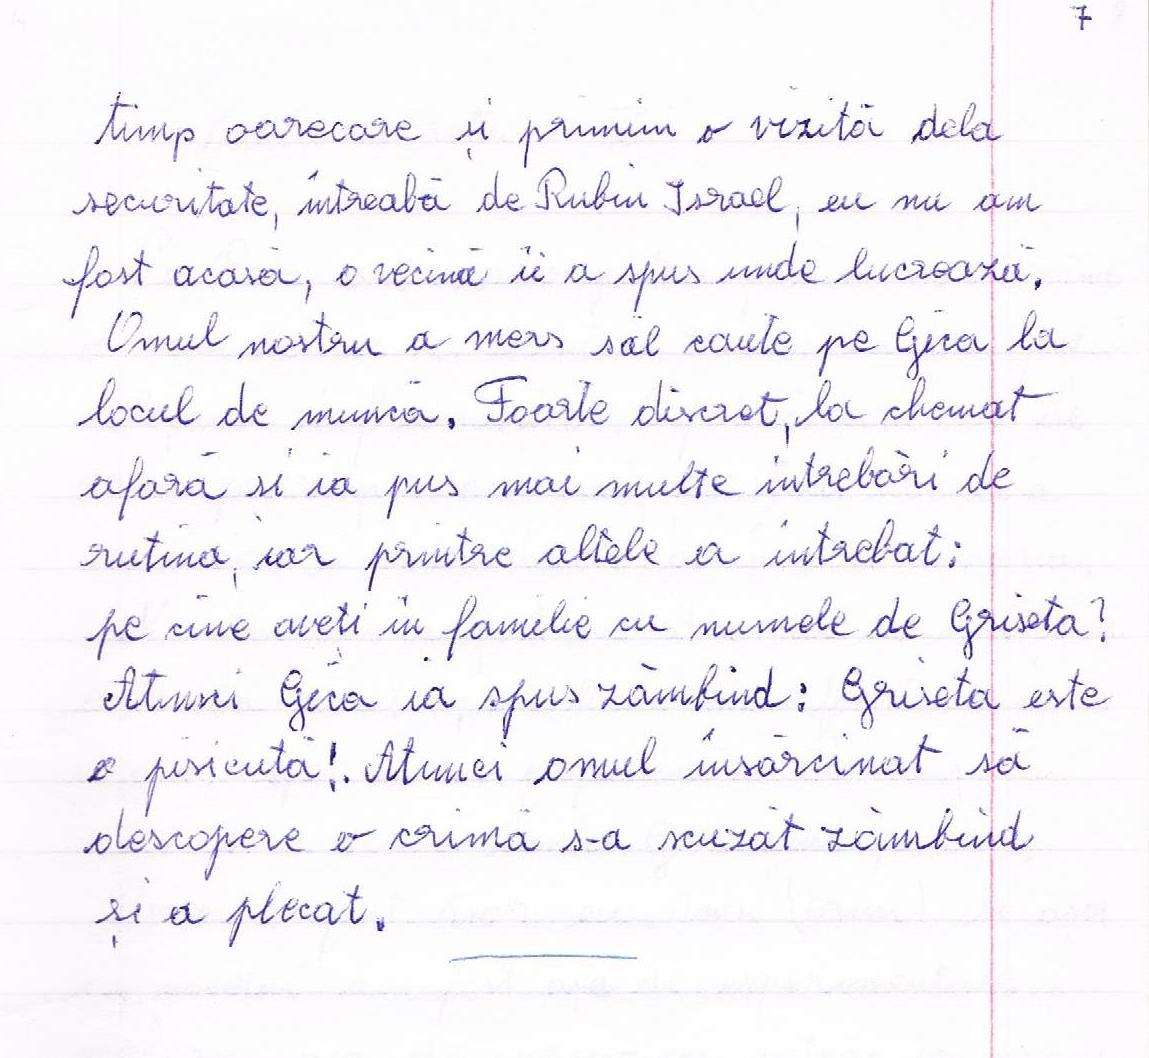 7
timp oarecare și primim o vizită dela
securitate, întreabă de Rubin Israel, eu nu am
fost acasă, o vecină îi a spus unde lucrează.
Omul nostru a mers săl caute pe Gica la
locul de muncă. Foarte discret, la chemat
afară si ia pus mai multe intrebări de
rutina, iar printre altele a intrebat:
pe cine aveți in familie cu numele de Griseta?
Atunci Gica ia spus zâmbind: Griseta este
o pisicută!. Atunci omul însărcinat să
descopere o crimă s-a scuzat zâmbind
și a plecat.